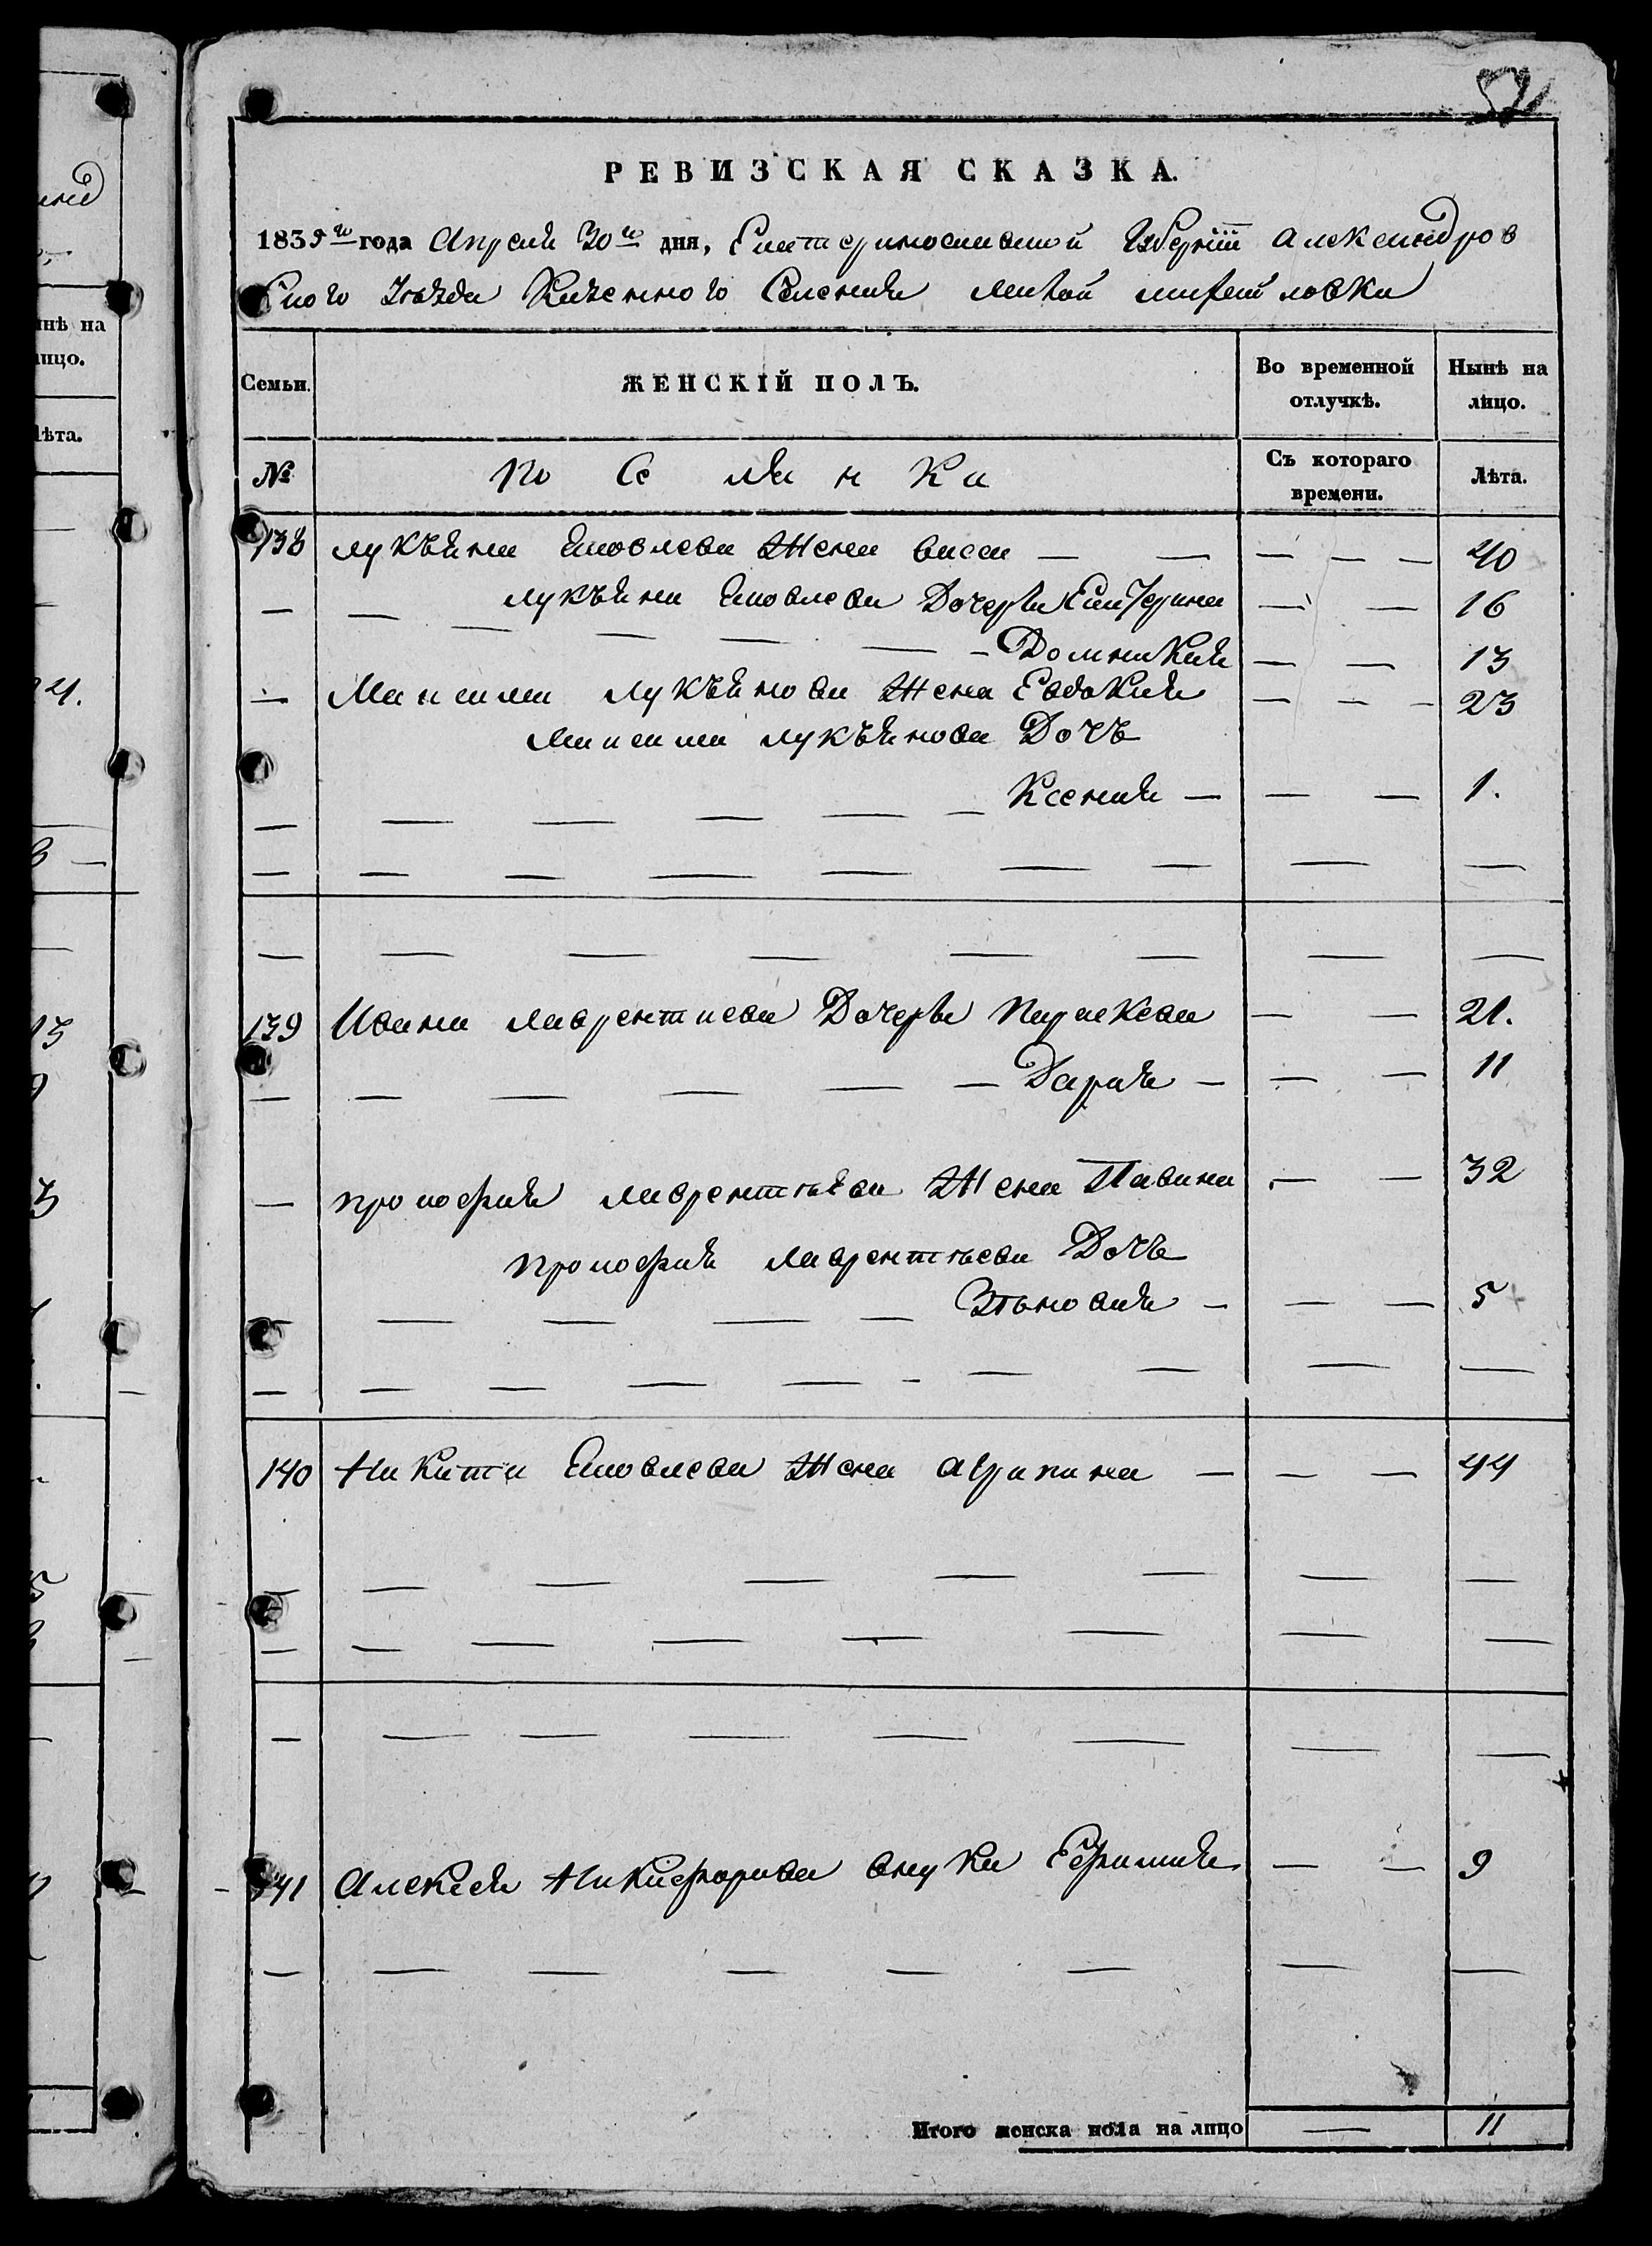 РЕВИЗСКАЯ СКАЗКА.
1835го года Апреля 30го дня, Екатеринослаской Губернiи Александров
ского Уезда Казенного Селения Малой михайловки
Семьи. ЖЕНСКІЙ ПОЛЪ. Во временной отлучкѣ. Нынѣ на лицо.
№ По Се ля н Ки Съ котораго времени. Лѣта.
138 лукъяна Яковлева Жена васса — — — — — 40
— — лукъяна Яковлева Дочеръи Екатерина — — 16
— — — — — Домникия — — 13
— Максима лукъянова Жена Евдокия — — — 23
Максима лукъянова Дочъ
— — — — — — Ксения — — — 1.
139 Ивана лаврентиева Дочеръи Параскева — — 21.
— — — — — — Дария — — — 11
— прокофия лаврентьева Жена Павина — — 32
прокофия лаврентьева Дочъ
— — — — — Зѣновия — — — 5
140 Никиты Яковлева Жена агрипина — — — 44
141 Алексея Никифорова внука Ефимия — — 9
Итого женска пола на лицо — 11
нѣ на
лицо.
лѣта.